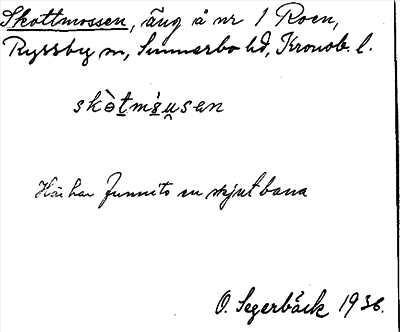 Skottmossen, äng å nr 1 Roen,
Ryssby sn, Sunnerbo hd, Kronob. l.
skòt̠m's̠u̯sen
Här har funnits en skjutbana
O. Segerbäck 1936.